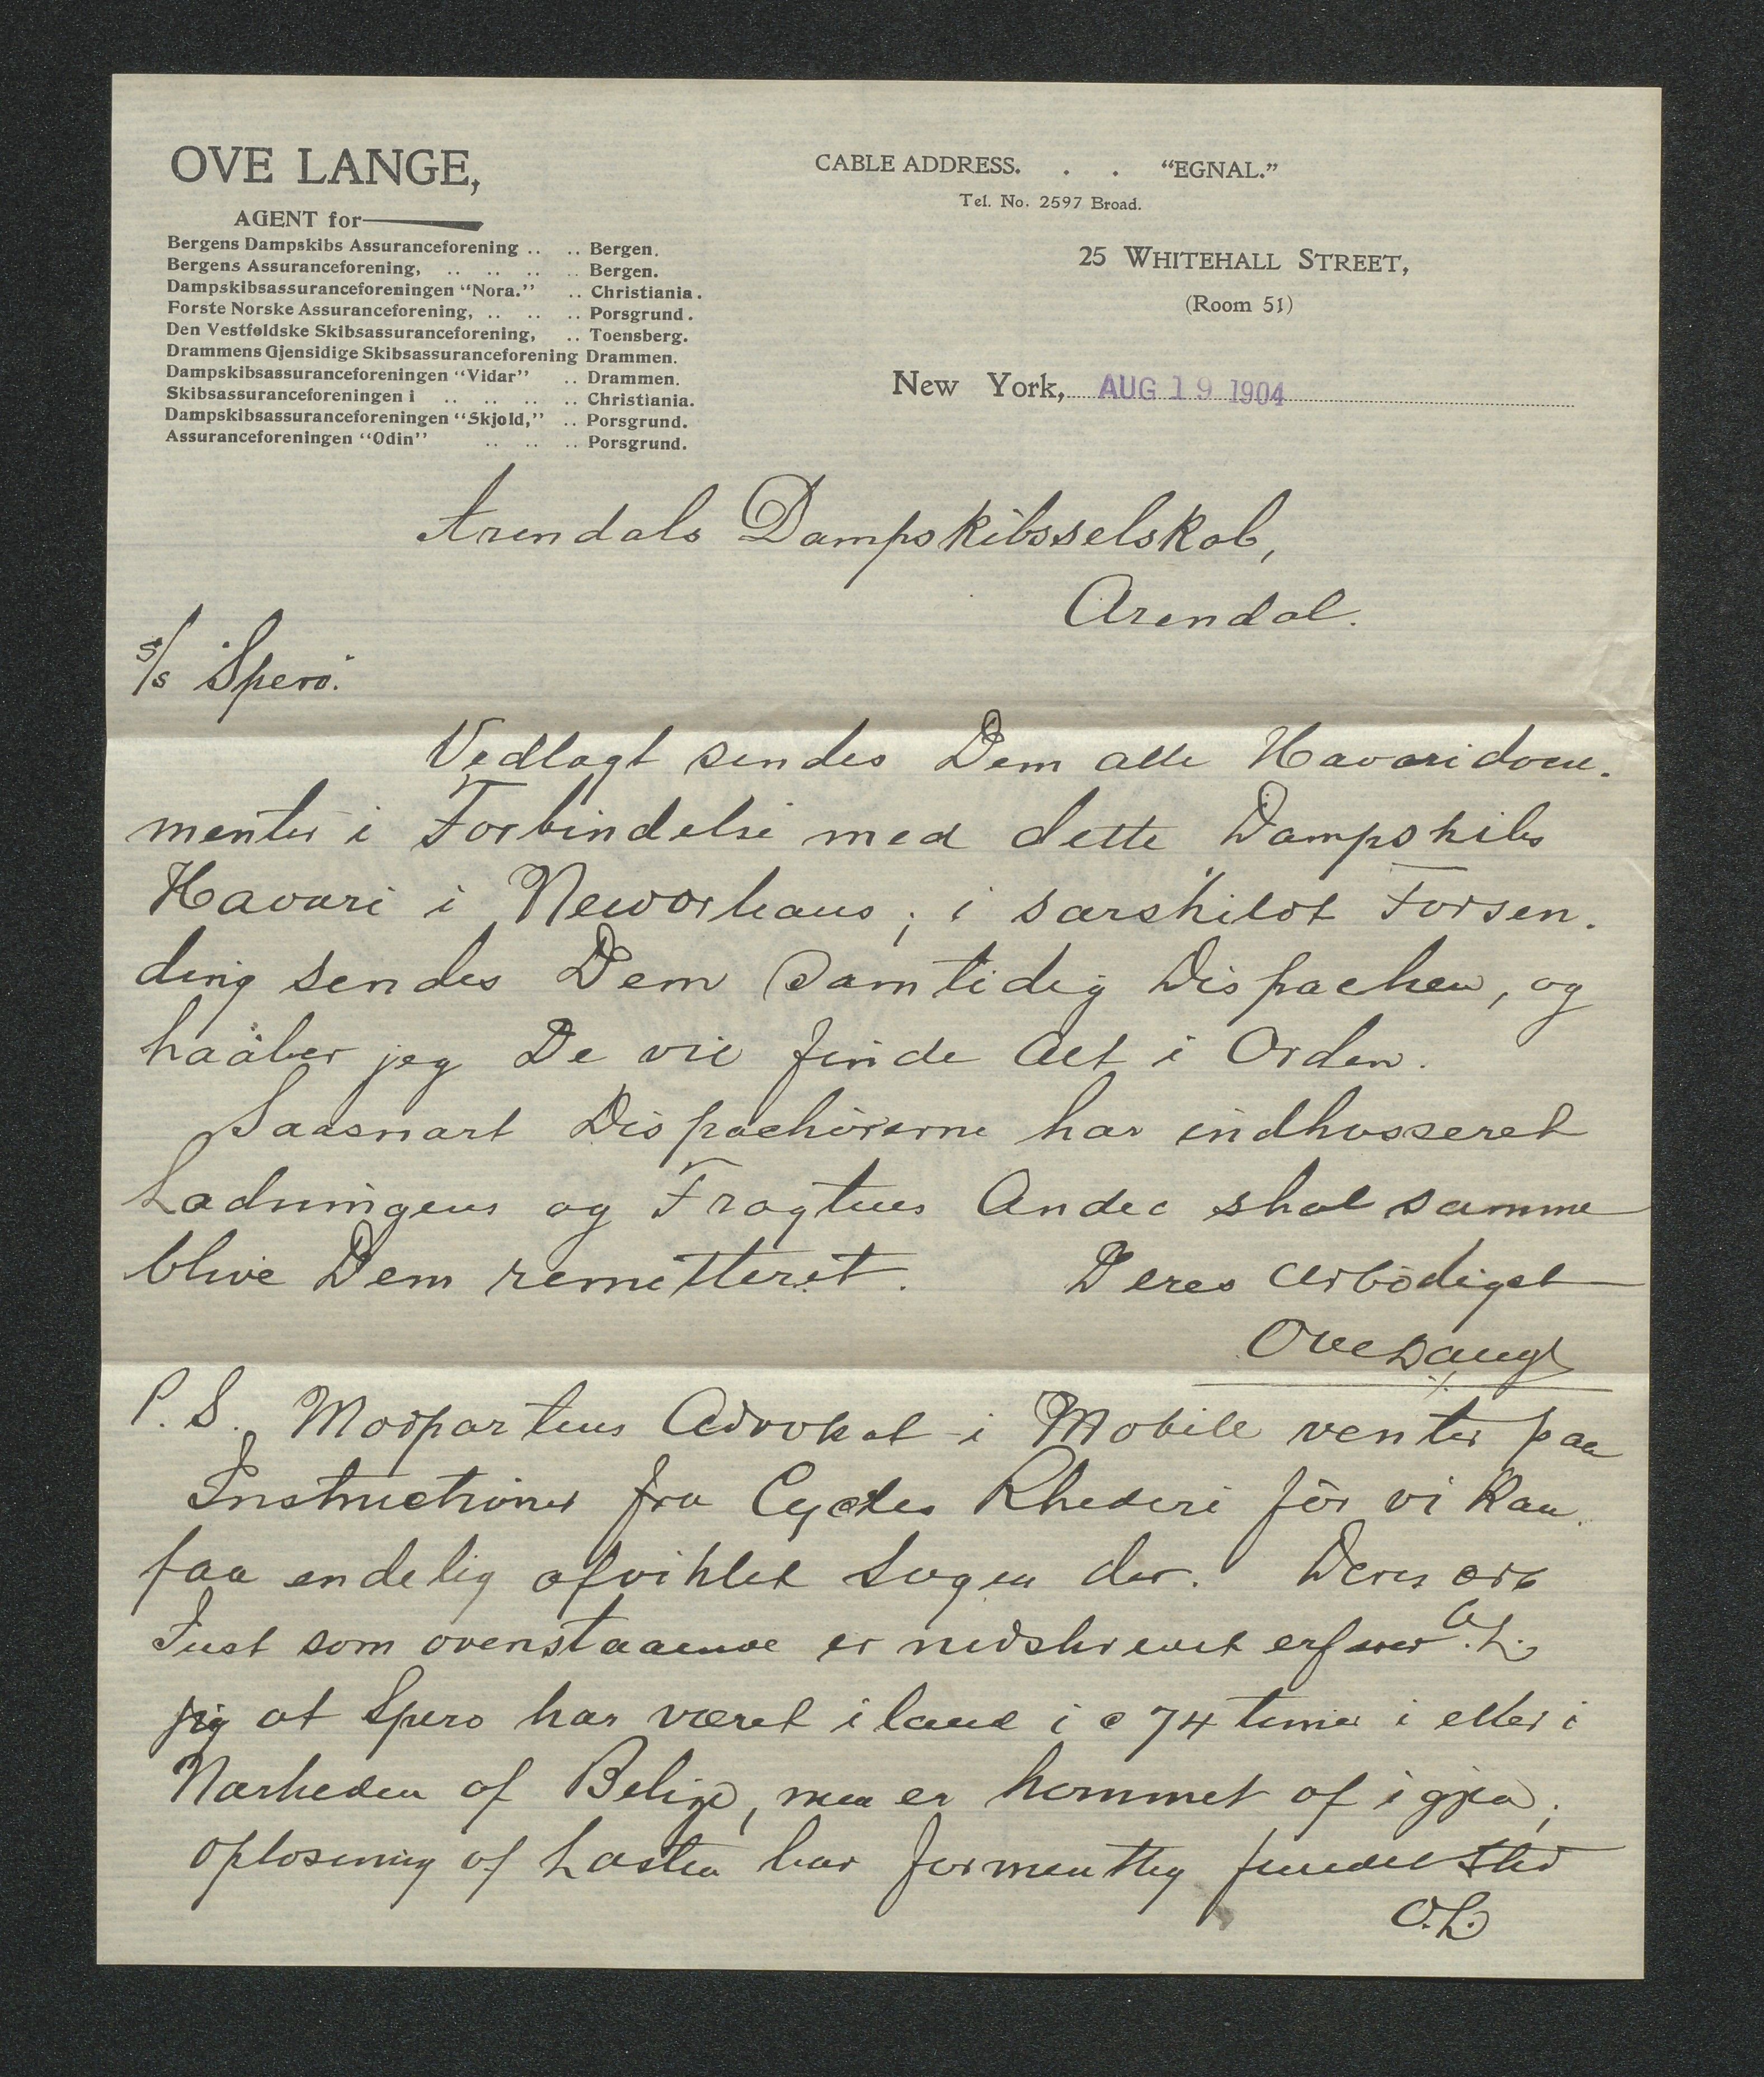 OVE LANGE,
AGENT for
Bergens Dampskibs Assuranceforening .. .. Bergen.
Bergens Assuranceforening, .. .. .. .. Bergen.
Dampskibsassuranceforeningen "Nora." .. Christiania.
Forste Norske Assuranceforening, .. .. .. Porsgrund.
Den Vestføldske Skibsassuranceforening, .. Toensberg.
Drammens Gjensidige Skibsassuranceforening Drammen.
Dampskibsassuranceforeningen "Vidar" .. Drammen.
Skibsassuranceforeningen i .. .. .. .. Christiania.
Dampskibsassuranceforeningen "Skjold," .. Porsgrund.
Assuranceforeningen "Odin" .. .. .. Porsgrund.
CABLE ADDRESS. . . "EGNAL."
Tel. No. 2597 Broad.
25 WHITEHALL STREET,
(Room 51)
New York, AUG 19 1904
Arendals Dampskibsselskab,
Arendal.
s/s "Spero".
Vedlagt sendes Dem alle Havaridocu-
menter i Forbindelse med dette Dampskibs
Havari i Neworleans; i särskildt Forsen-
ding sendes Dem samtidig Dispachen, og
haaber jeg De vil finde Alt i Orden.
Saasnart Dispachörerne har indkasseret
Ladningens og Fragtens Andel skal samme
blive Dem remitteret. Deres Ærbödigst
Ove Lange
P.S. Modpartens Advokat i Mobile venter paa
Instructioner fra Rhederi för vi kan
faa endelig afviklet Sagen der. Deres ærb
O.L.
Just som ovenstaaende er nedskrevet erfarer
jeg at Spero har været iland i c 74 timer i eller i
Nærheden af Belize, men er kommet af igjen;
oplosning af Lasten har formentlig fundet sted
O.L.